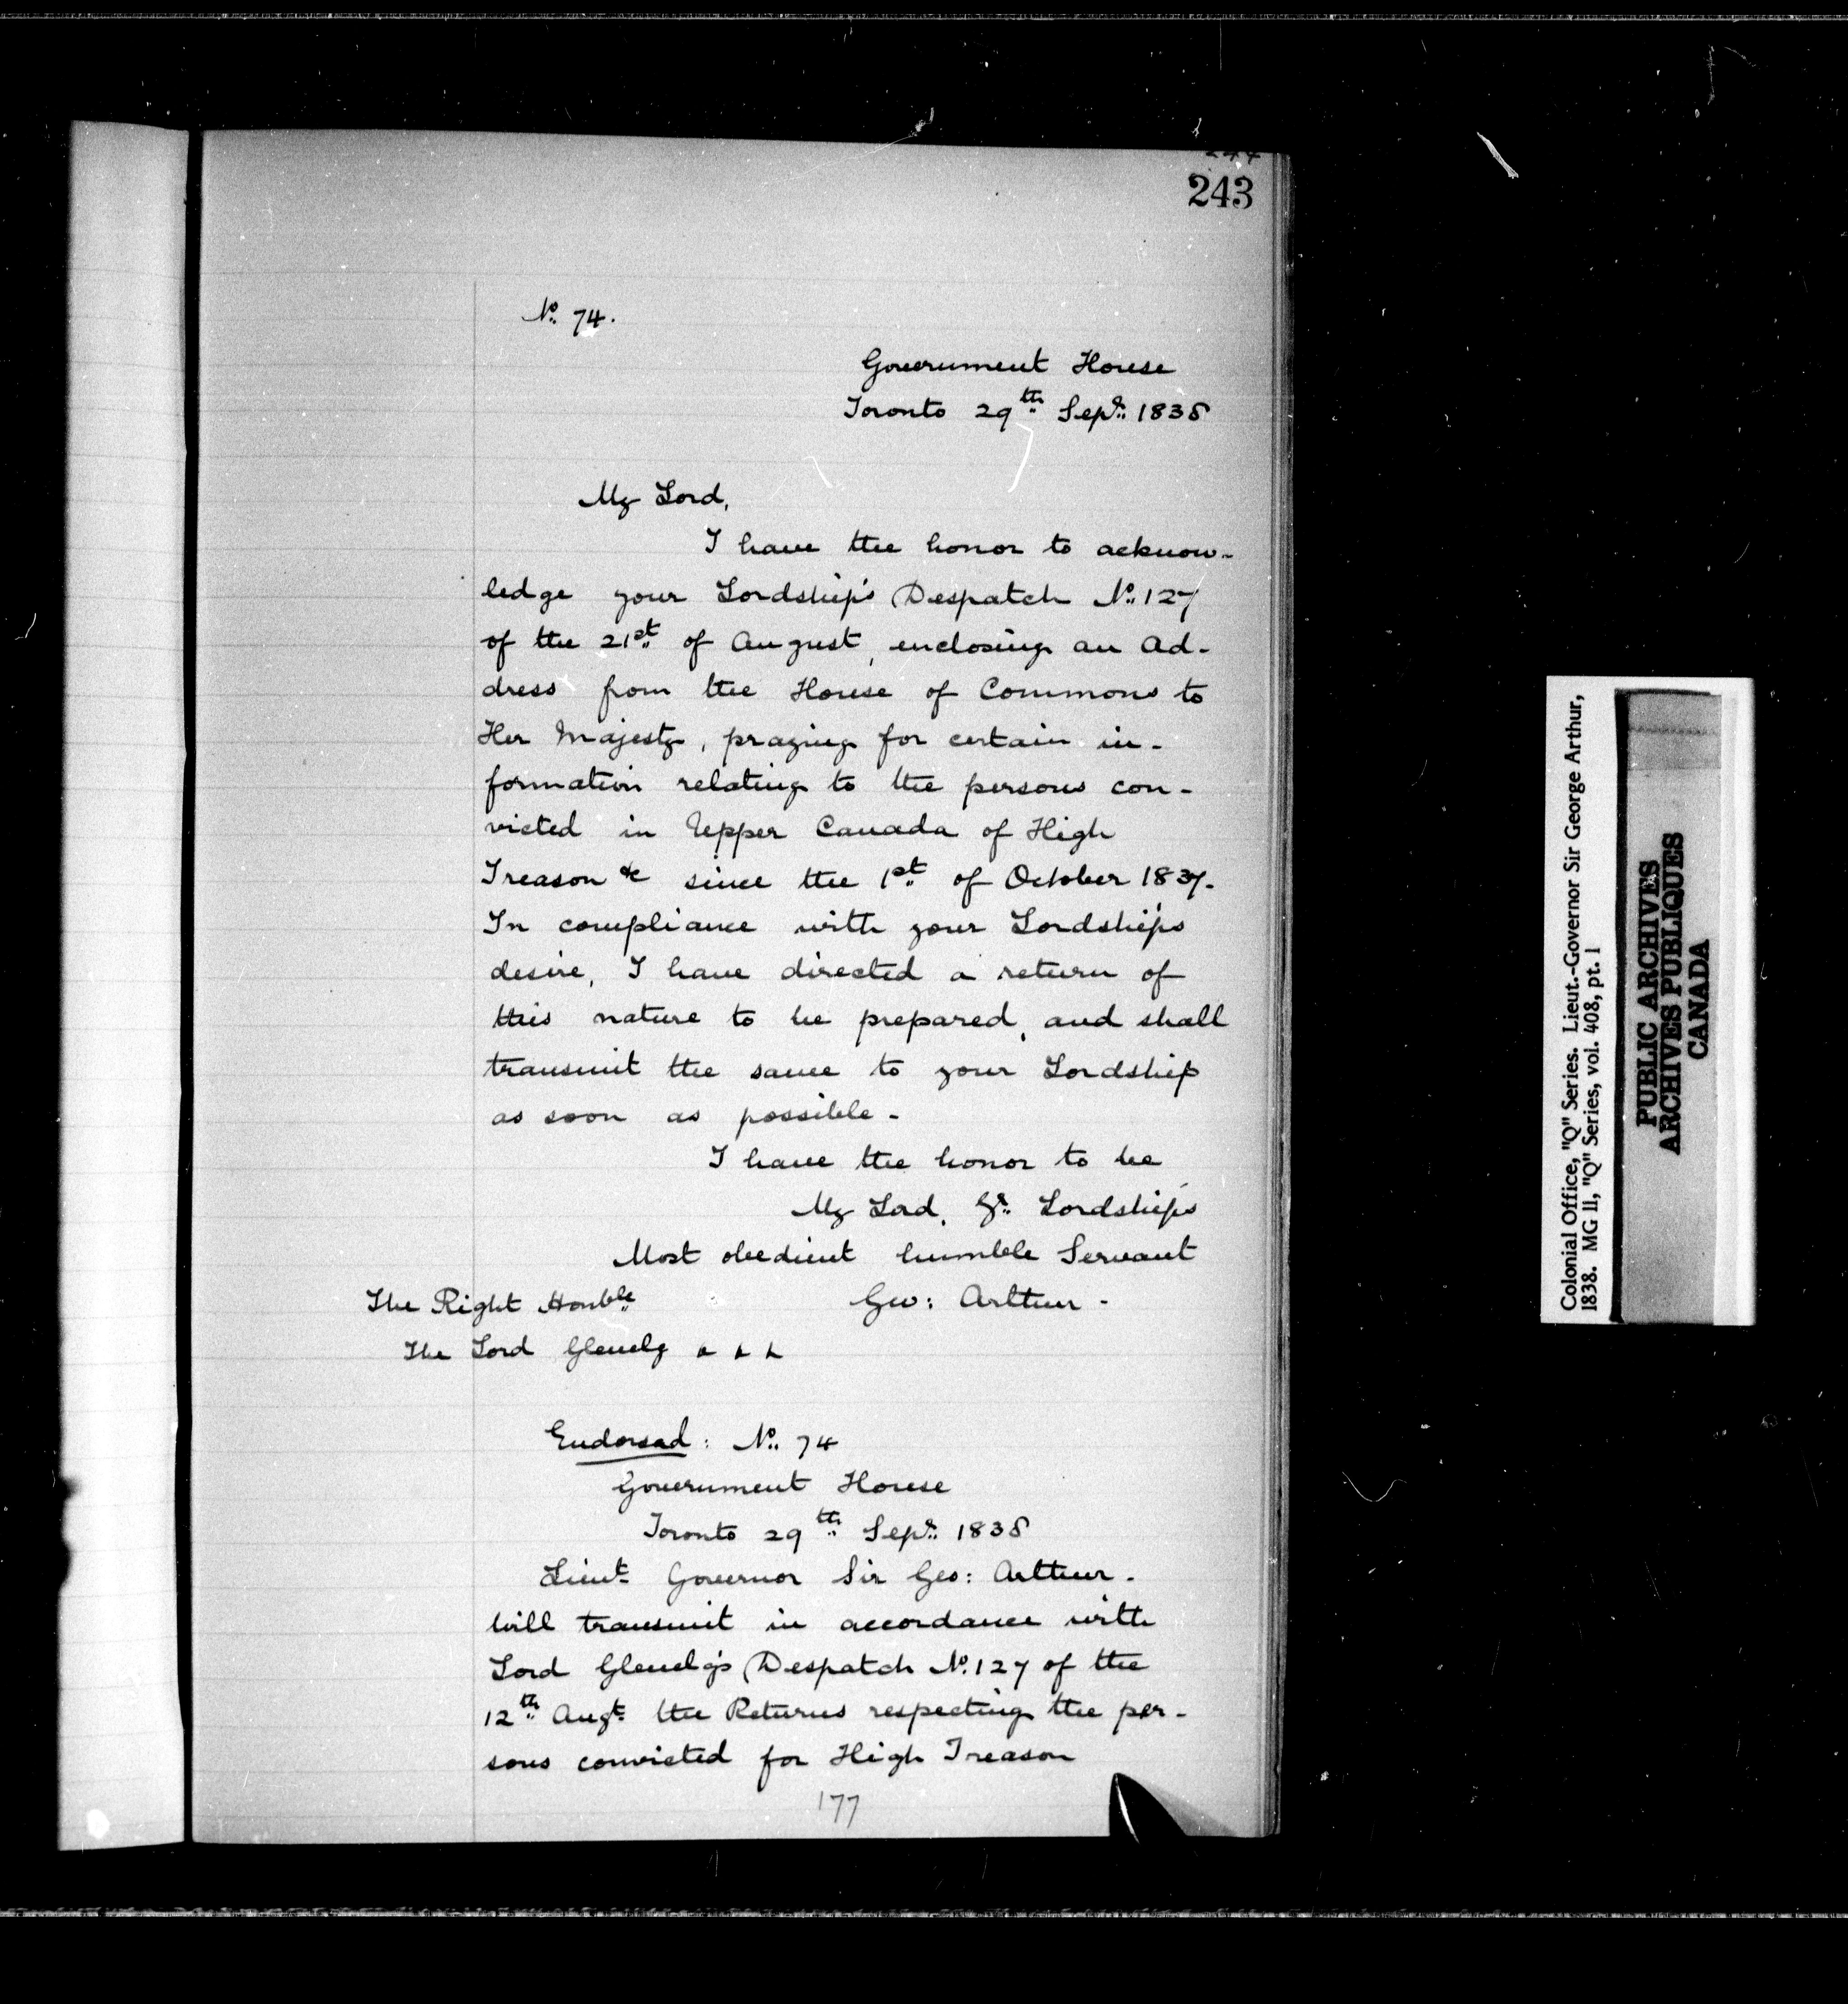 243
No. 74.
Government House
Toronto 29th Sepr. 1838
My Lord,
I have the honor to acknow-
ledge your Lordship's Despatch No. 127
of the 21st of August, enclosing an Ad-
dress from the House of Commons to
Her Majesty, praying for certain in-
formation relating to the persons con-
victed in Upper Canada of High
Treason &c since the 1st of October 1837.
In compliance with your Lordship's
desire, I have directed a return of
this nature to be prepared, and shall
transmit the same to your Lordship
as soon as possible -
I have the honor to be
My Lord, Yr. Lordship's
Most obedient humble Servant
Geo: Arthur -
The Right Honble
The Lord Glenelg
Endorsed: No. 74
Government House
Toronto 29th Sepr. 1838
Lieut Governor Sir Geo: Arthur.
Will transmit in accordance with
Lord Glenelg's Despatch No. 127 of the
12th Augt. the Returns respecting the per-
sons convicted for High Treason
177
Colonial Office, "Q" Series. Lieut.-Governor Sir George Arthur,
1838. MG 11, "Q" Series, vol. 408, pt. 1
PUBLIC ARCHIVES
ARCHIVES PUBLIQUES
CANADA